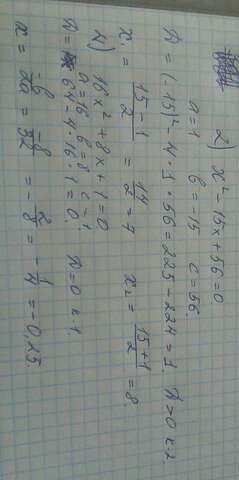 2) x² - 15x + 56 = 0
a = 1 b = -15 c = 56
D = (-15)² - 4 · 1 · 56 = 225 - 224 = 1. D > 0 2 к.
x₁ = (15 - 1)/2 = 14/2 = 7 x₂ = (15 + 1)/2 = 8.
4) 16x² + 8x + 1 = 0
a = 16 b = 8 c = 1
D = 64 - 4 · 16 · 1 = 0. D = 0 1 к.
x = -b/2a = -8/32 = -2/8 = -1/4 = -0,25